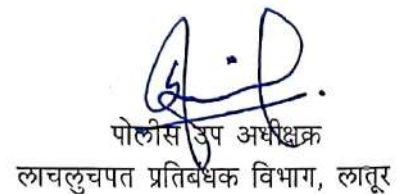 पोलीस उप अधीक्षक
लाचलुचपत प्रतिबंधक विभाग, लातूर